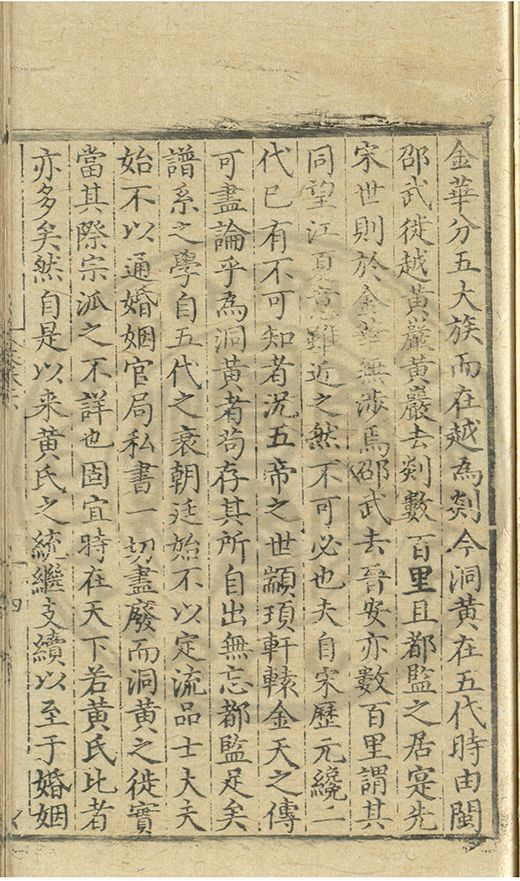 金華分五大族而在越為剡今洞黃在五代時由閩
邵武徙越黃巖黃巖去剡數百里且都監之居寔先
宋世則於金華無涉焉邵武去吾安亦數百里謂其
同望江夏意雖近之然不可必也夫自宋歷元纔二
代已有不可知者況五帝之世顓頊軒轅金天之傳
可盡論乎為洞黃者茍存其所自出無忘都監足矣
譜系之學自五代之衰朝廷始不以定流品士大夫
始不以通婚姻官局私書一切盡廢而洞黃之徙實
當其際宗派之不詳也固宜時在天下若黃氏比者
亦多矣然自是以來黃氏之統繼支續以至于婚姻
四